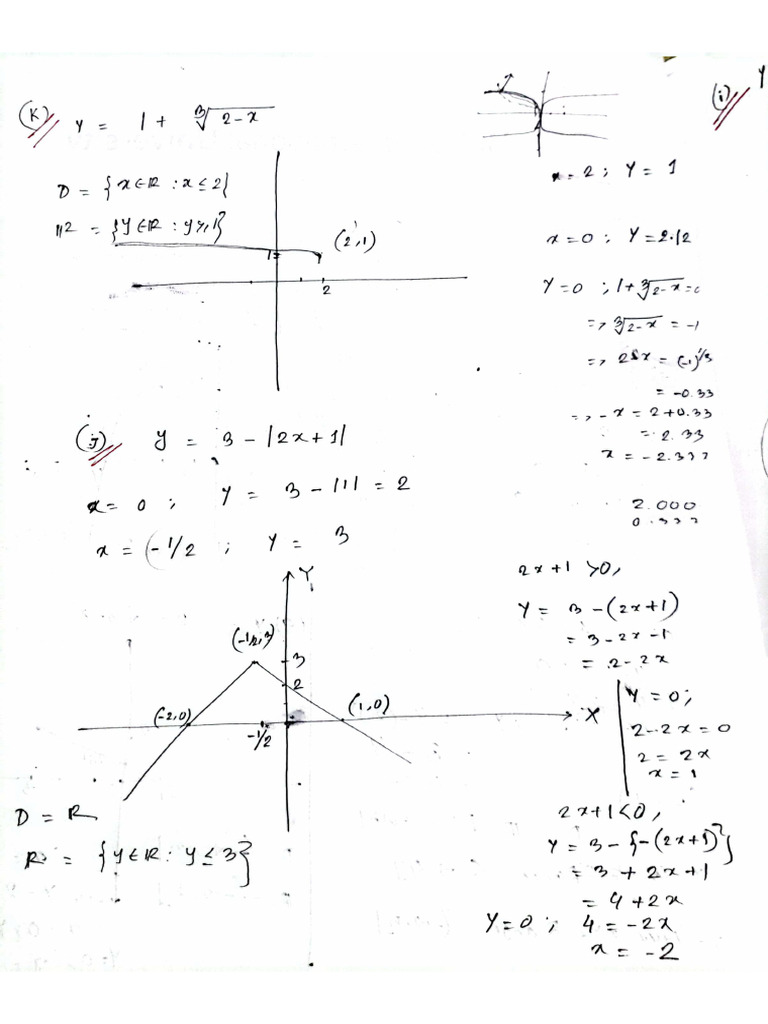 (K) Y = 1 + ∛(2-x)
D = {x∈R : x ≤ 2}
R = {y∈R : y ≥ 1}
(2,1)
1
2
(i) Y
x = 2 ; Y = 1
x=0 ; Y=2.12
Y=0 ; 1+∛(2-x)=0
=> ∛(2-x) = -1
=> 2-x = (-1)^1/3
= -0.33
=> -x = 2+0.33
= 2.33
x = -2.333
2.000
0.333
(J) y = 3 - |2x+1|
x = 0 ; Y = 3 - |1| = 2
x = (-1/2 ; Y = 3
Y
(-1/2,3)
3
2
(-2,0)
-1/2
(1,0)
X
D = R
R = {y∈R : y ≤ 3}
2x+1 >0,
Y = 3 - (2x+1)
= 3-2x-1
= 2-2x
Y=0;
2-2x=0
2 = 2x
x=1
2x+1<0,
Y= 3-{-(2x+1)}
= 3 + 2x+1
= 4+2x
Y=0 ; 4 = -2x
x = -2